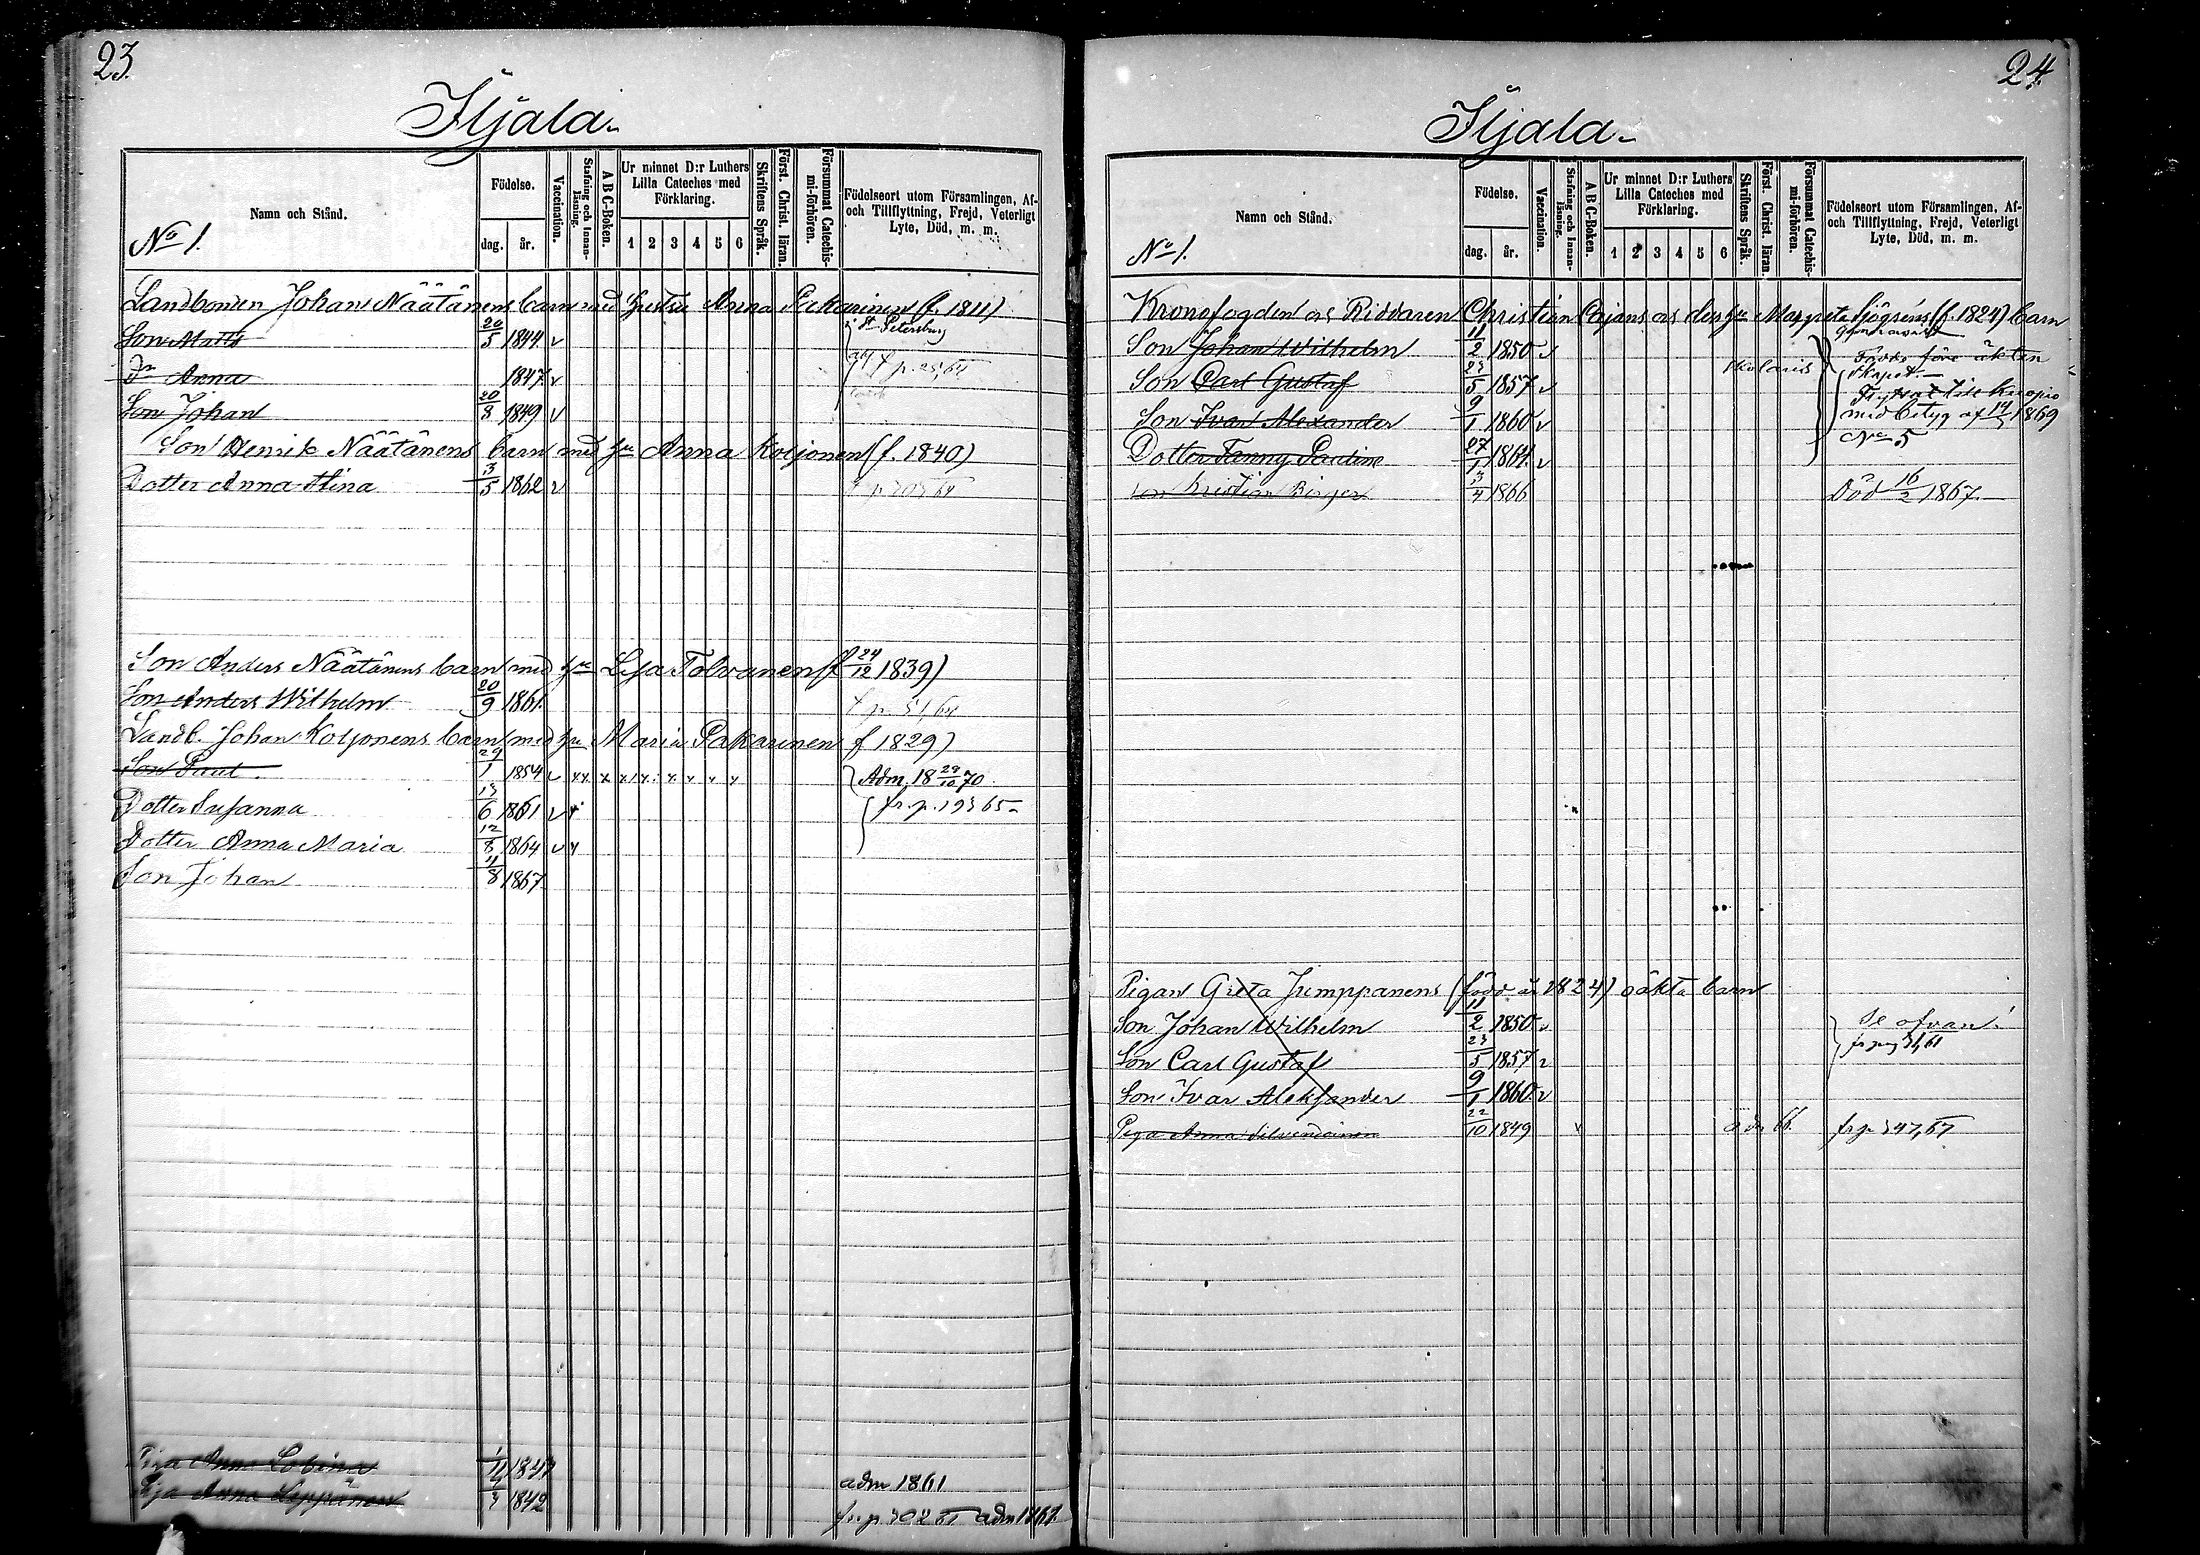 23
Iljala
Namn och Stånd.
Födelse.
dag.
år.
Vaccination.
Stafning och Innanläsning.
A B C-Boken.
Ur minnet D:r Luthers Lilla Cateches med Förklaring.
1 2 3 4 5 6
Skriftens Språk.
Först. Christ. läran.
Försummat Catechismi-förhören.
Födelseort utom Församlingen, Af- och Tillflyttning, Frejd, Veterligt Lyte, Död, m. m.
No 1.
Landbonden Johan Näätänens barn med hustru Anna (f. 1811)
Son Matts 20/5 1844 v St Petersburg
Dr Anna 1847 v
Son Johan 20/8 1849 v
Son Henrik Näätänens barn med hu Anna Koljonen (f. 1840)
Dotter Anna Stina 3/5 1862 v
Son Anders Näätänens barn med hu Lisa Tolvanen (f 24/12 1839)
Son Anders Wilhelm 20/9 1861
Landb. Johan Koljonens barn med hu Maria Pakarinen f 1829)
Son Paul 29/1 1854 v Adm. 18 29/10 70.
Dotter Susanna 13/6 1861 v fr. p. 193 65
Dotter Anna Maria 12/8 1864 v
Son Johan 11/8 1867
Piga Anna 1847 adm 1861
Piga Anna Leppänen 3 1842 fr. p. 302 adm 1861
24.
Iljala
Namn och Stånd.
Födelse.
dag.
år.
Vaccination.
Stafning och Innanläsning.
A B C-Boken.
Ur minnet D:r Luthers Lilla Cateches med Förklaring.
1 2 3 4 5 6
Skriftens Språk.
Först. Christ. läran.
Försummat Catechismi-förhören.
Födelseort utom Församlingen, Af- och Tillflyttning, Frejd, Veterligt Lyte, Död, m. m.
No 1.
Kronofogden och Riddaren Christian Cajans och dess hu Margreta Sjögréns (f. 1824) barn
Son Johan Wilhelm 11/2 1850 v Födde före äkten
Son Carl Gustaf 23/5 1857 v skolaris skapet.
Son Ivar Alexander 9/1 1860 v Flyttat till Kuopio med betyg af 1869
Dotter Fanny Pauline 27/1 1864 v No 5
Son Kristian Birger 3/4 1866 Död 16/2 1867.
Pigan Greta Jumppanens (född år 1824) oäkta barn
Son Johan Wilhelm 11/2 1850 v Se ofvan!
Son Carl Gustaf 23/5 1857 v
Son Ivar Aleksander 9/1 1860 v
Piga Anna 22/10 1849 66. fr p. 347, 67